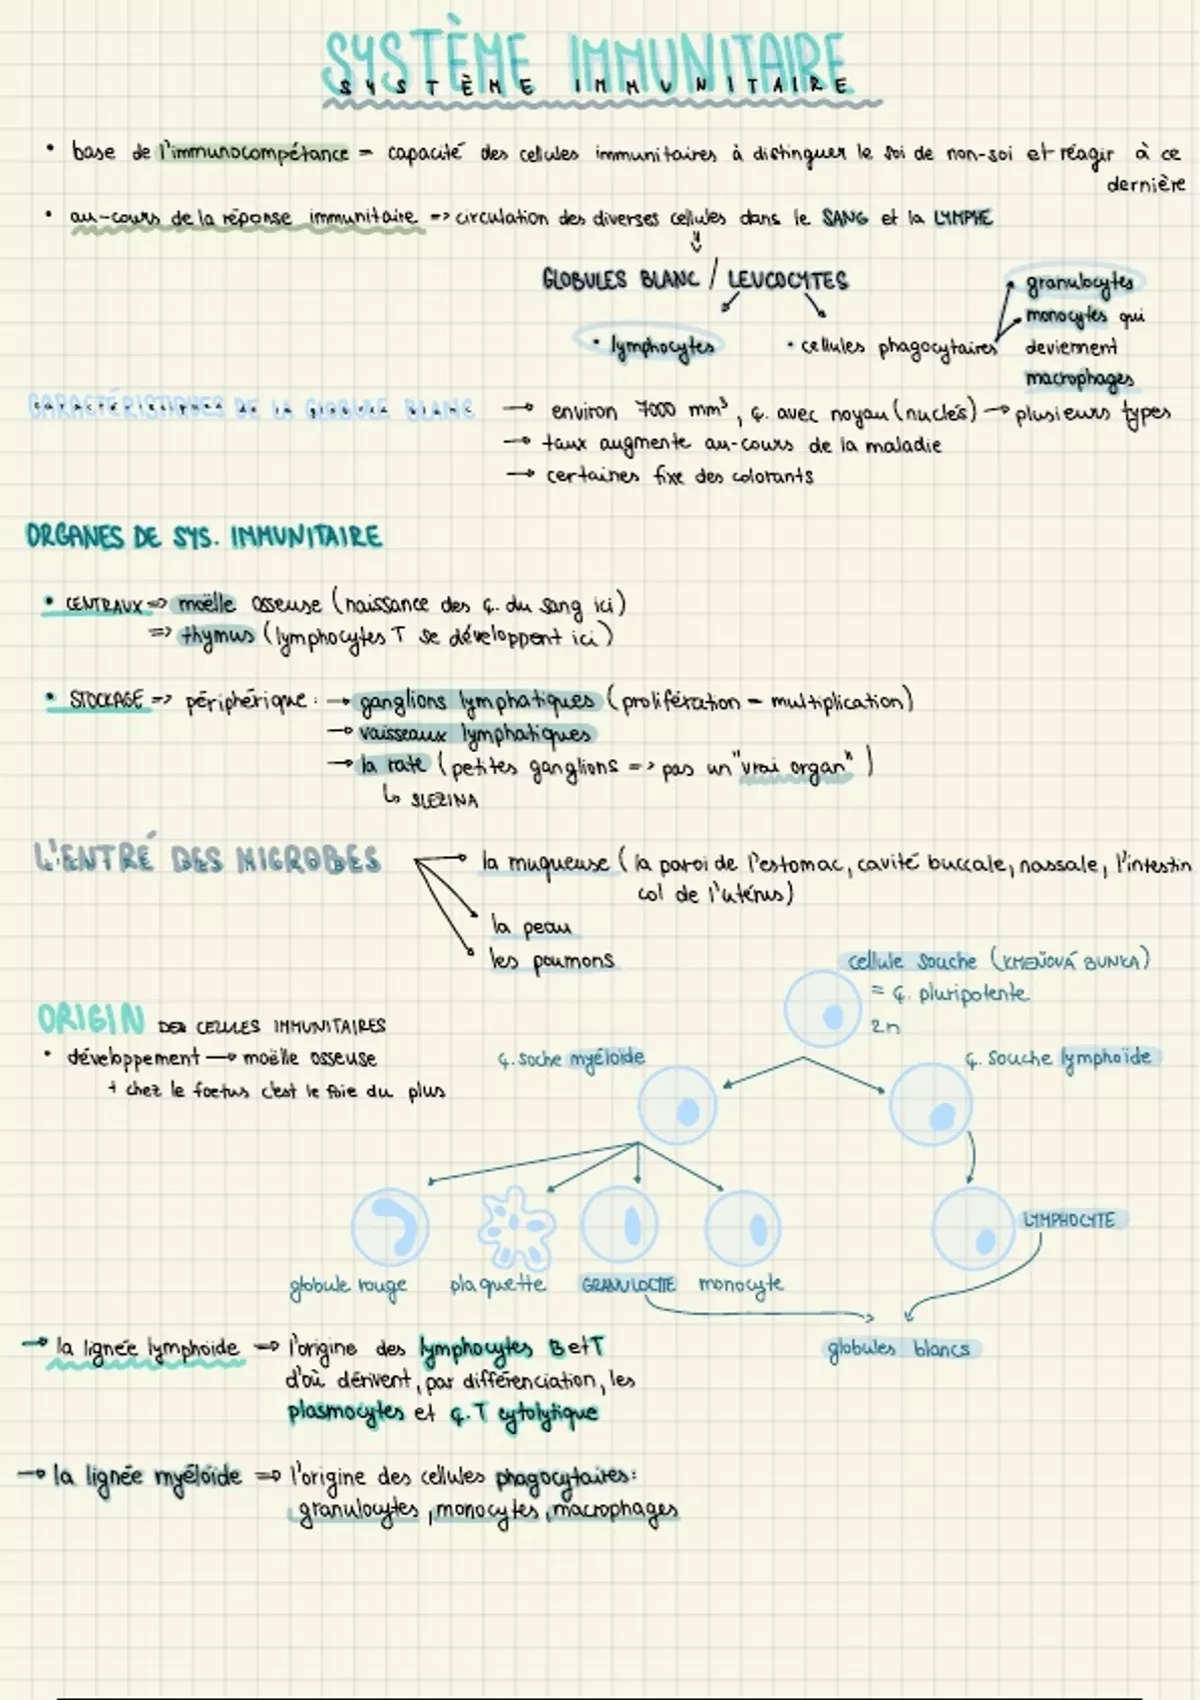 SYSTÈME IMMUNITAIRE
SYSTÈME IMMUNITAIRE
• base de l'immunocompétance = capacité des cellules immunitaires à distinguer le soi de non-soi et réagir à ce
dernière
• au-cours de la réponse immunitaire => circulation des diverses cellules dans le SANG et la LYMPHE
GLOBULES BLANC / LEUCOCYTES
• lymphocytes
• cellules phagocytaires
granulocytes
monocytes qui
deviennent
macrophages
CARACTÉRISTIQUES DE LA GLOBULE BLANC
→ environ 7000 mm³, ç. avec noyau (nuclés) → plusieurs types
→ taux augmente au-cours de la maladie
→ certaines fixe des colorants
ORGANES DE SYS. IMMUNITAIRE
• CENTRAUX => moëlle osseuse (naissance des ç. du sang ici)
=> thymus (lymphocytes T se développent ici)
• STOCKAGE => périphérique : → ganglions lymphatiques (prolifération = multiplication)
→ vaisseaux lymphatiques
→ la rate (petites ganglions => pas un "vrai organ")
↳ SLEZINA
L'ENTRÉ DES MICROBES
la muqueuse (la paroi de l'estomac, cavité buccale, nassale, l'intestin
col de l'utérus)
la peau
les poumons
cellule souche (KMEŇOVÁ BUNKA)
= ç. pluripotente
2n
ORIGIN DES CELLULES IMMUNITAIRES
• développement → moëlle osseuse
+ chez le foetus c'est le foie du plus
ç. soche myéloïde
ç. souche lymphoïde
LYMPHOCYTE
globule rouge
plaquette
GRANULOCTTE
monocyte
globules blancs
→ la lignée lymphoïde => l'origine des lymphocytes B et T
d'où dérivent, par différenciation, les
plasmocytes et ç. T cytolytique
→ la lignée myéloïde => l'origine des cellules phagocytaires:
granulocytes, monocytes, macrophages